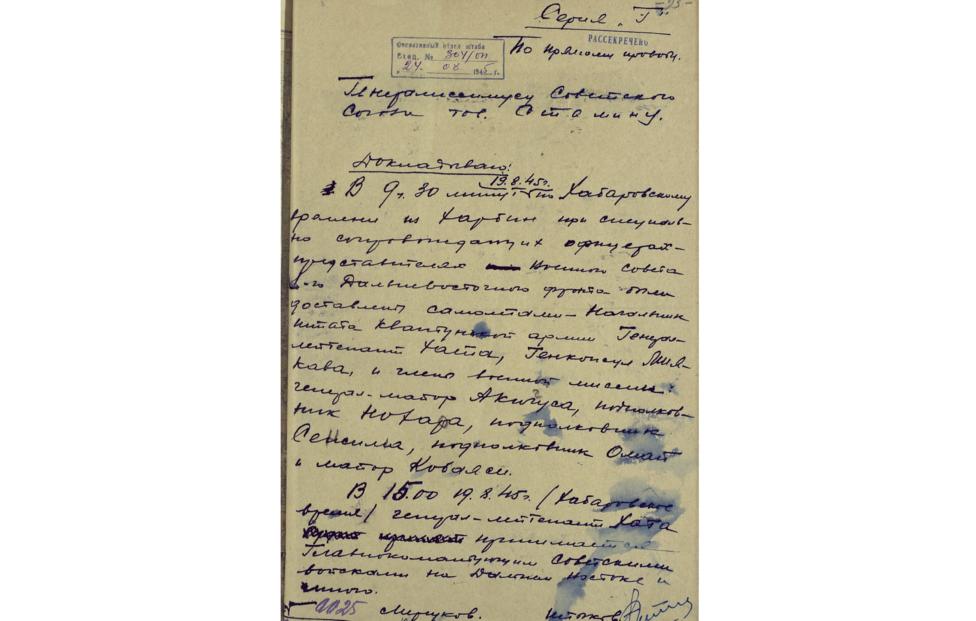 -23-
Серия "Г"
РАССЕКРЕЧЕНО
По прямому проводу.
Оперативный отдел штаба
Вход. № 304/оп
"24" 08 1945 г.
Генералиссимусу Советского
Союза тов. Сталину.
Докладываю:
19.8.45г.
В 9ч. 30 минут по Хабаровскому
времени из Харбин при специаль-
но сопровождающих офицерах-
представителях Военного Совета
1-го Дальневосточного фронта были
доставлены самолетами - Начальник
штаба Квантунской армии Генерал-
лейтенант Хата, Генконсул Мия-
кава, и члены военной миссии:
генерал-майор Акикуса, подполков-
ник Нохара, подполковник
Сенсима, подполковник
и майор Кобаяси.
В 15.00 19.8.45г. /Хабаровское
время/ генерал-лейтенант Хата
принимается
Главнокомандующим Советскими
войсками на Дальнем Востоке и
мною.
Мерецков. Штыков